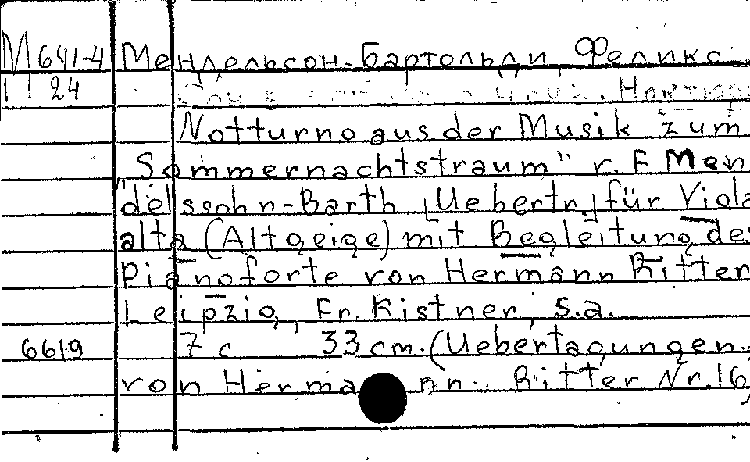 М 641-4 Мендельсон-Бартольди, Феликс
1124
Notturno aus der Musik zum
"Sommernachtstraum" v. F. Men
delssohn-Barth [Uebertr] für Viola
alta (Altgeige) mit Begleitung de
Pianoforte von Hermann Ritter
Leipzig, Fr. Kistner, s.a.
6619 7 c 33 cm. (Uebertagungen
von Hermann Ritter Nr. 16)